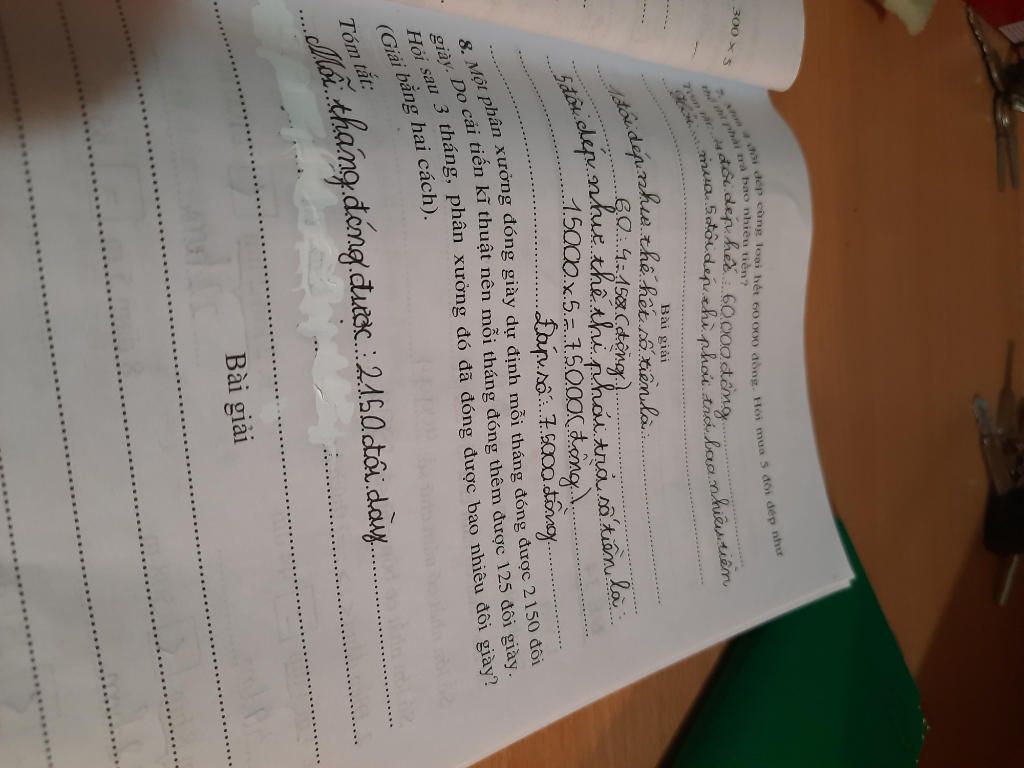 300 x 5
đôi dép cùng loại hết 60 000 đồng. Hỏi mua 5 đôi dép như
trả bao nhiêu tiền?
4 đôi dép hết : 60 000 đồng
mua 5 đôi dép thì phải trả bao nhiêu tiền
Bài giải
1 đôi dép như thế hết số tiền là
60 : 4 = 15000 (đồng)
5 đôi dép như thế thì phải trả số tiền là :
15000 x 5 = 75000 (đồng)
Đáp số : 75000 đồng
8. Một phân xưởng đóng giày dự định mỗi tháng đóng được 2 150 đôi
giày. Do cải tiến kĩ thuật nên mỗi tháng đóng thêm được 125 đôi giày.
Hỏi sau 3 tháng, phân xưởng đó đã đóng được bao nhiêu đôi giày?
(Giải bằng hai cách).
Tóm tắt:
Mỗi tháng đóng được : 2150 đôi dày
Bài giải